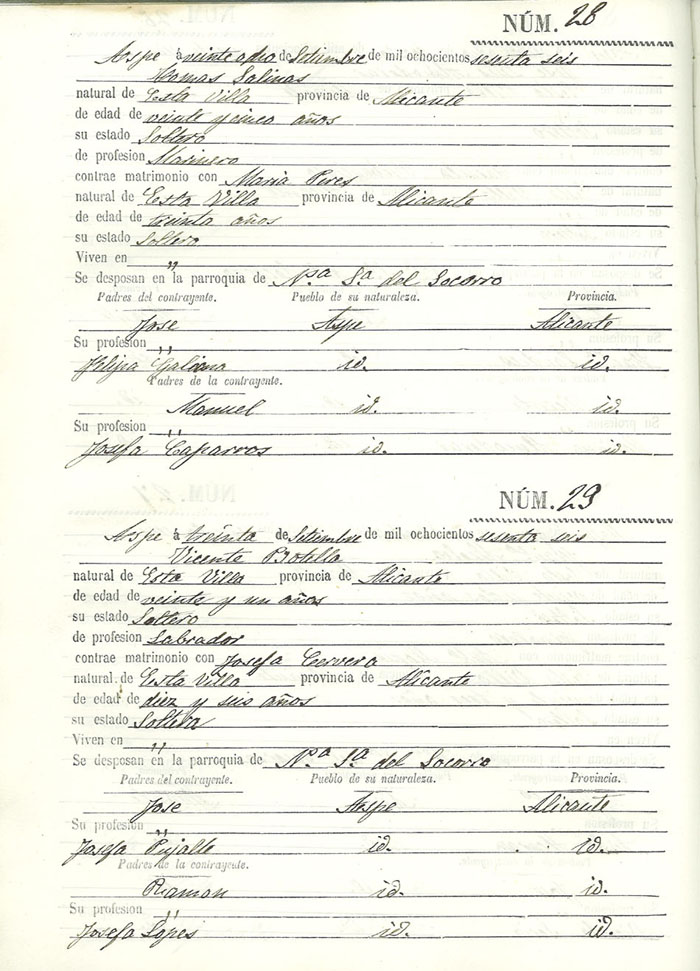 NÚM. 28
Aspe á veinte ocho de Setiembre de mil ochocientos sesenta seis
Tomas Salinas
natural de Esta Villa provincia de Alicante
de edad de veinte y cinco años
su estado Soltero
de profesion Marinero
contrae matrimonio con Maria Peres
natural de Esta Villa provincia de Alicante
de edad de treinta años
su estado Soltero
Viven en „
Se desposan en la parroquia de N.ª S.ª del Socorro
Padres del contrayente. Pueblo de su naturaleza. Provincia.
Jose Aspe Alicante
Su profesion „
Felipa Galiana id. id.
Padres de la contrayente.
Manuel id. id.
Su profesion „
Josefa Caparros id. id.
NÚM. 29
Aspe á treinta de Setiembre de mil ochocientos sesenta seis
Vicente Botella
natural de Esta Villa provincia de Alicante
de edad de veinte y un años
su estado Soltero
de profesion Labrador
contrae matrimonio con Josefa Cervera
natural de Esta Villa provincia de Alicante
de edad de diez y seis años
su estado Soltera
Viven en „
Se desposan en la parroquia de N.ª S.ª del Socorro
Padres del contrayente. Pueblo de su naturaleza. Provincia.
Jose Aspe Alicante
Su profesion „
Josefa Pujalte id. id.
Padres de la contrayente.
Ramon id. id.
Su profesion „
Josefa Lopes id. id.